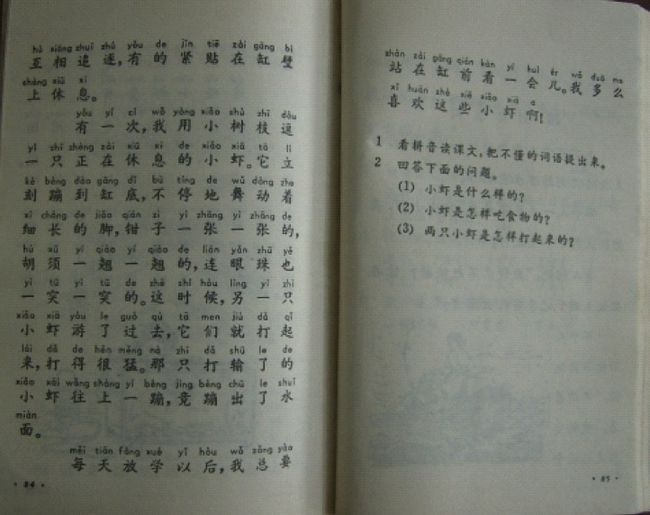 hù xiāng zhuī zhú yǒu de jǐn tiē zài gāng bì
互相追逐,有的紧贴在缸壁
shàng xiū xi
上休息。
yǒu yí cì wǒ yòng xiǎo shù zhī dòu
有一次,我用小树枝逗
yì zhī zhèng zài xiū xi de xiǎo xiā tā lì
一只正在休息的小虾。它立
kè bèng dào gāng dǐ bù tíng de wǔ dòng zhe
刻蹦到缸底,不停地舞动着
xì cháng de jiǎo qián zi yì zhāng yì zhāng de
细长的脚,钳子一张一张的,
hú xū yí qiào yí qiào de lián yǎn zhū yě
胡须一翘一翘的,连眼珠也
yì tū yì tū de zhè shí hòu lìng yì zhī
一突一突的。这时候,另一只
xiǎo xiā yóu le guò qù tā men jiù dǎ qǐ
小虾游了过去,它们就打起
lái dǎ de hěn měng nà zhī dǎ shū le de
来,打得很猛。那只打输了的
xiǎo xiā wǎng shàng yí bèng jìng bèng chū le shuǐ
小虾往上一蹦,竟蹦出了水
miàn
面。
měi tiān fàng xué yǐ hòu wǒ zǒng yào
每天放学以后,我总要
·84·
zhàn zài gāng qián kàn yí huì ér wǒ duō me
站在缸前看一会儿。我多么
xǐ huān zhè xiē xiǎo xiā a
喜欢这些小虾啊!
1 看拼音读课文,把不懂的词语提出来。
2 回答下面的问题。
(1) 小虾是什么样的?
(2) 小虾是怎样吃食物的?
(3) 两只小虾是怎样打起来的?
·85·